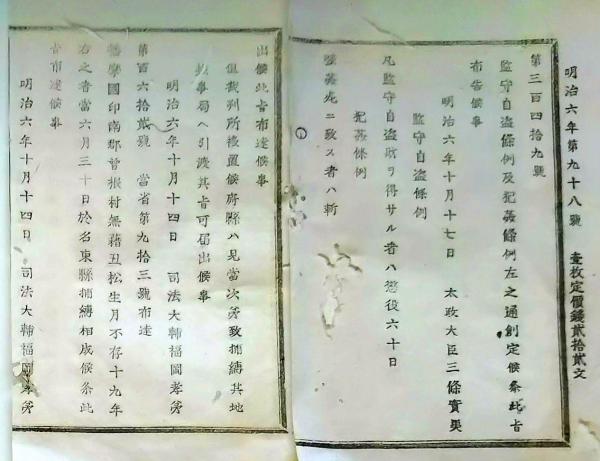 明治六年第九十八號　壹枚定價錢貳拾貳文
第三百四拾九號
監守自盜條例及犯姦條例左之通創定候条此旨
布告候事
明治六年十月十七日　太政大臣三條實美
監守自盜條例
凡監守自盜財ヲ得サル者ハ懲役六十日
犯姦條例
強姦死ニ致ス者ハ斬
出候此旨布達候事
但裁判所被置候府縣ハ見當次第致捕縛其地
事局ヘ引渡其旨可届出候事
明治六年十月十四日　司法大輔福岡孝弟
第百六拾貳號　當省第九拾三號布達
播摩國印南郡曾根村無藉丑松生月不存十九年
右之者當六月三十日於名東縣捕縛相成候条此
旨布達候事
明治六年十月十四日　司法大輔福岡孝弟